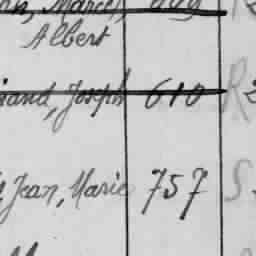 Marcel,
Albert
Joseph 610 R
Jean, Marie 757 S